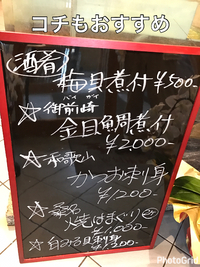 コチもおすすめ
酒肴
梅貝煮付 ¥500-
バイガイ
☆御前崎
金目鯛煮付
¥2,000-
☆和歌山
かつお刺身
¥1200-
☆桑名
焼はまぐり
¥1,000-
☆白みる貝刺身
PhotoGrid